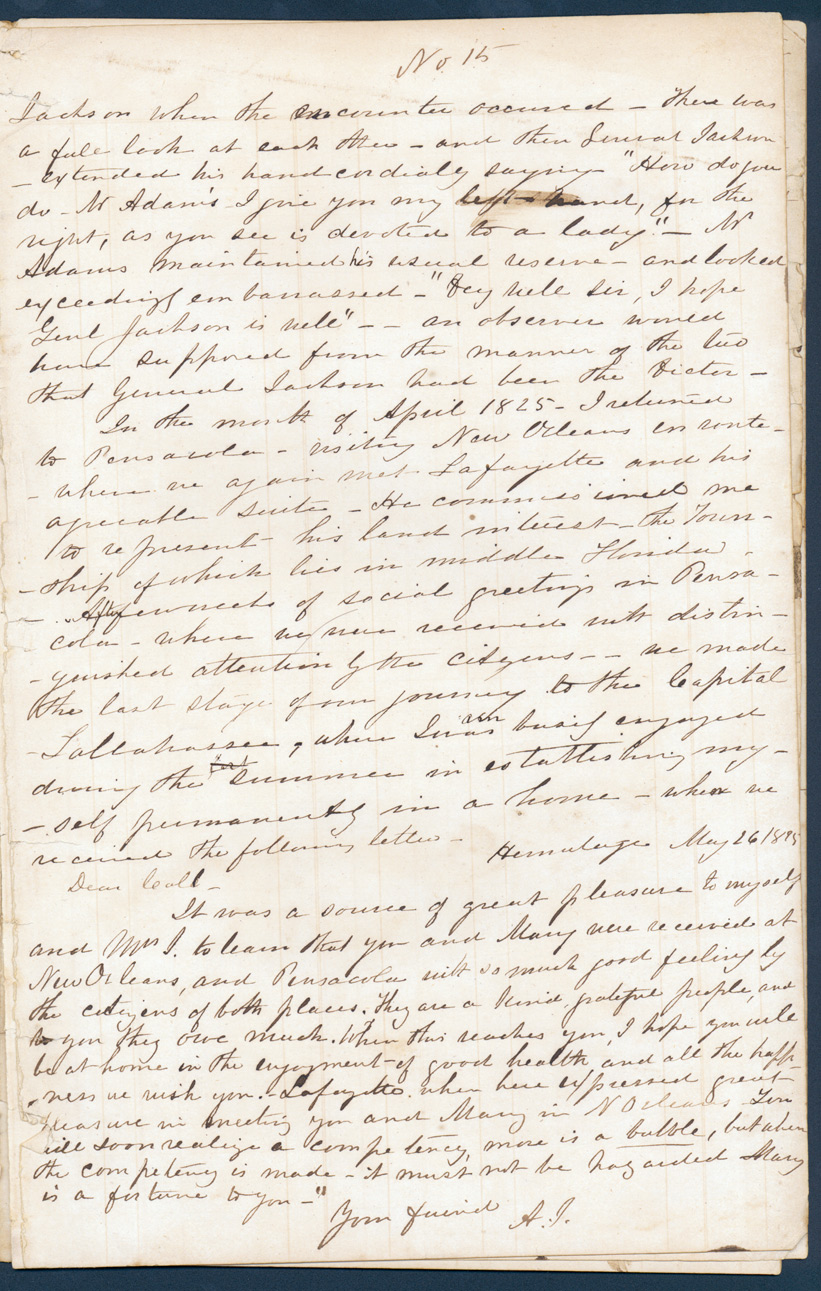 No. 15
Jackson when the encounter occured - There was
a full look at each other - and then General Jackson
- extended his hand cordialy saying "How do you
do - Mr Adam's I give you my left hand, for the
right, as you see is devoted to a lady" - Mr
Adams maintained his usual reserve - and looked
exceedingly embarrassed - "Very well Sir, I hope
Genl Jackson is well" - - an observer would
have supposed from the manner of the two
that General Jackson had been the Victor -
In the month of April 1825 - I returned
to Pensacola - visiting New Orleans en route -
- where we again met Lafayette and his
agreeable suite - He commissioned me
to represent his land interest - the Town-
- ship of which lies in middle Florida -
- After few weeks of social greetings in Pensa-
cola - where we were received with distin-
- guished attention by the citizens - - we made
the last stage of our journey to the Capital
- Tallahassee, where I was busily engaged
during the summer in establishing my-
- self permanently in a home - where we
received the following letter -
Hermitage May 26 18
Dear Call -
It was a source of great pleasure to myself
and Mrs J. to learn that you and Mary were received at
New Orleans, and Pensacola with so much good feeling by
the citizens of both places. They are a kind, grateful people, and
to you they owe much. When this reaches you, I hope you will
be at home in the enjoyment of good health and all the happ-
-ness we wish you. - Lafayette when here expressed great
pleasure in meeting you and Mary in N Orleans. You
will soon realize a competency, more is a bubble, but when
the competency is made - it must not be hazarded Mary
is a fortune to you - "
Your friend A. J.